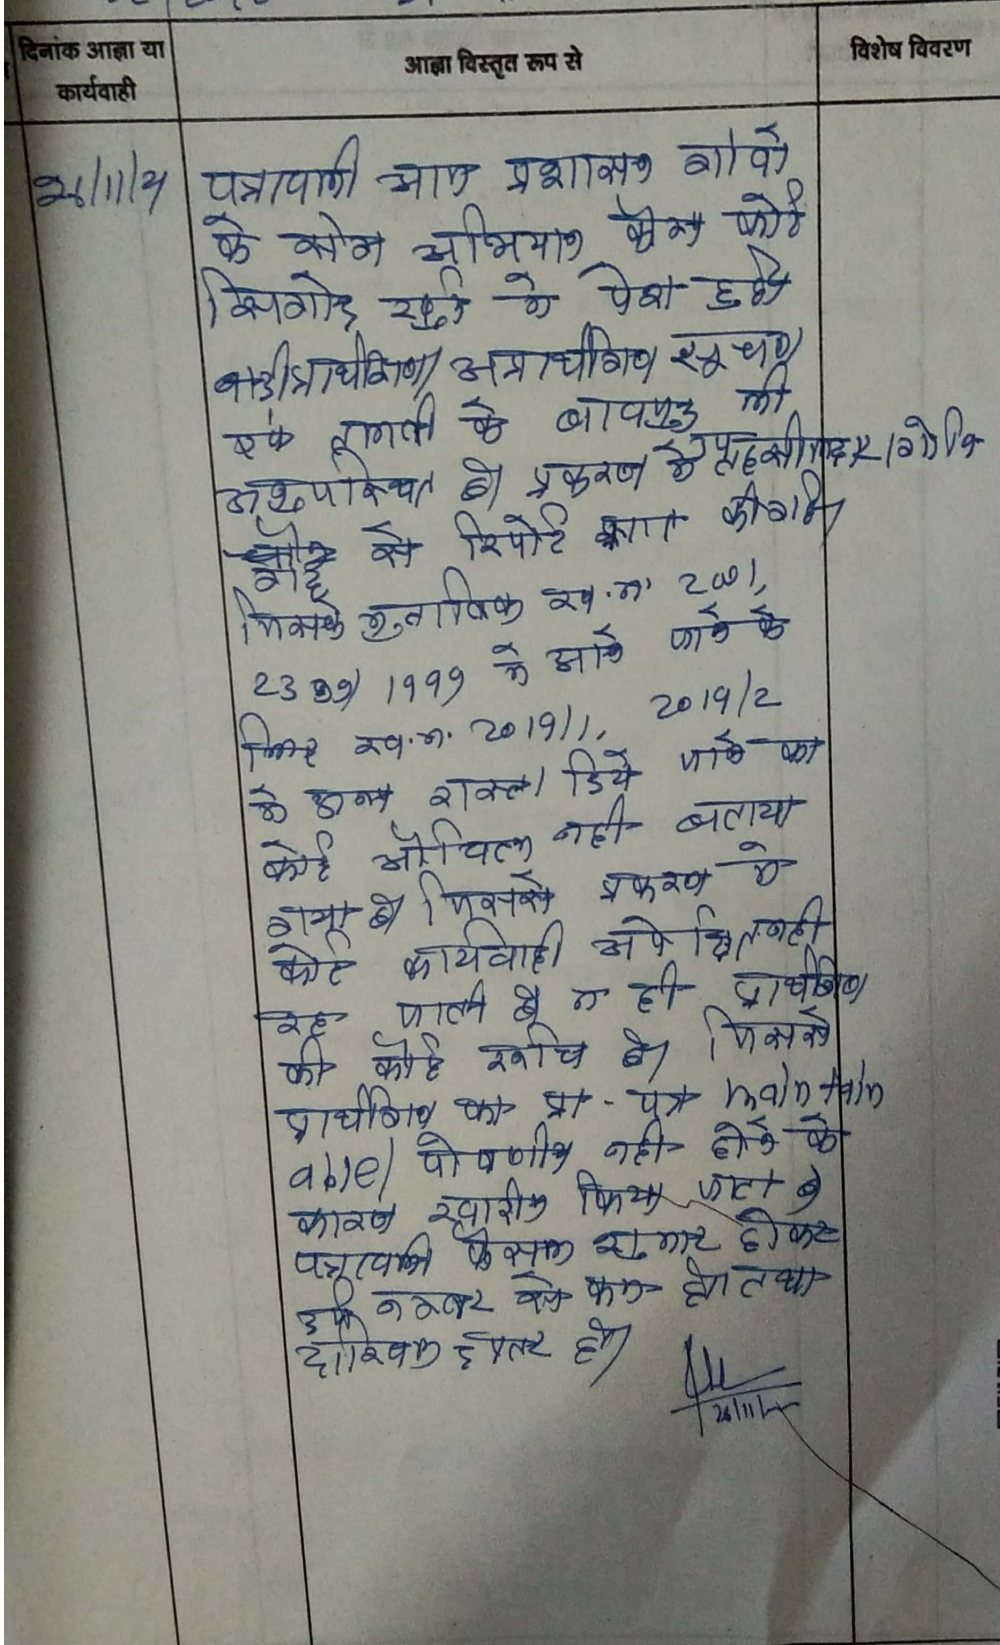 दिनांक आज्ञा या
कार्यवाही
आज्ञा विस्तृत रूप से
विशेष विवरण
26/11/21
पत्रावली आज प्रशासन गांवो
के संग अभियान कैम्प कोर्ट
सिगोद खुर्द मे पेश हुई।
प्रार्थीगण/अप्रार्थीगण सूचना
एवं तामली के बावजूद भी
अनुपस्थित है। प्रकरण मे तहसीलदार
से रिपोर्ट प्राप्त की गई।
जिसके मुताबिक ख.न.
1999 मे आने जाने के
लिए ख.न. 2019/1, 2019/2
मे अन्य रास्ता दिये जाने का
कोई औचित्य नही बताया
गया है। जिससे प्रकरण मे
कोई कार्यवाही अपेक्षित नही
रह जाती है न ही प्रार्थीगण
की कोई रूचि है। जिससे
प्रार्थीगण का प्रा. पत्र maintain
able/ पोषणीय नही होने के
कारण खारीज किया जाता है
पत्रावली फैसल शुमार होकर
नम्बर से कम हो तथा
दाखिल दफ्तर हो।
26/11/21